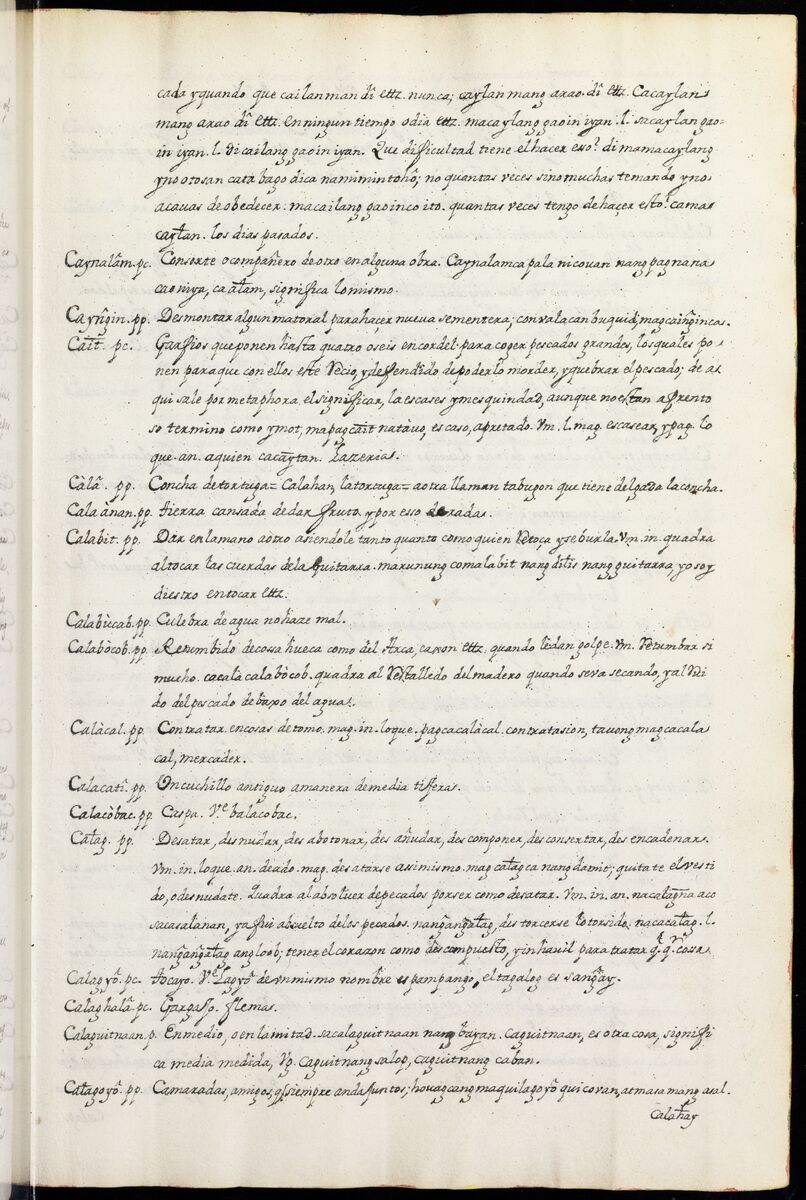 cada y quando que cailan man dĩ ettz. nunca; caylan mang arao. dĩ ettz. Cacaylan
mang arao dĩ ettz. en ningun tiempo o dia ettz. macaylang gaoin iyan .l. sacaylan gao=
in iyan .l. di cailang gaoin iyan. Que dificultad tiene el hacer eso? di mamacaylang
yno otosan cata bago dica namimintohõ; no quantas veces sino muchas te mando y no
acavas de obedecer. macailang gaoin co ito. quantas veces tengo de haçer esto? camac
caylan. los dias pasados.
Caynalãm. pc. Consorte o compañero de otro en alguna obra. Caynalamca pala ni covan nang pagnana
cao niya, ca alam, significa lo mismo.
Cayñgin. pp. Desmontar algun matoral para haçer nueva sementera; con vala can buquid; mag caiñgin cas.
Caĩt. pc. Garfios que ponen hasta quatro o seis en cordel para coger pescados grandes, los quales po
nen para que con ellos esté Recio, y defendido de poderlo morder, y quebrar el pescado; de a
qui sale por metaphora el significar, la escases y mesquindad, aunque no es tan afrento
so termino como ymot, mapagcait na tàvo, es caso, apretado. Vm. l. mag. escasear, y pag. lo
que. an. a quien cacaytan. Lazerias.
Càlã. pp. Concha de tortuga = Calahan, la tortuga = a otra llaman tabugon que tiene delgada la concha.
Cala ànan. pp. tierra cansada de dar fruto, y por eso de radas.
Calabit. pp. Dar en la mano a otro asiendole tanto quanto como quien Retoça y se burla. Vm. in. quadra
al tocar las cuerdas de la guitarra. marunung comalabit nang dilis nang guitarra, yo soy
diestro en tocar ettz.
Calabùcab. pp. Culebra de agua no haze mal.
Calabòcob. pp. Retumbido de cosa hueca como del Arca, caxon ettz. quando le dan golpe. Vm. Retumbar si
mucho. cacala calabòcob. quadra al Restalledo del madero quando se va secando, y al Rui
do del pescado debaxo del agua.
Calàcal. pp. Contratar en cosas de tomo. mag. in. lo que. pagcacalàcal. contratasion, tavong mag cacala
cal, mercader.
Calacatĩ. pp. Un cuchillo antiguo a manera de media tisseras.
Calacòbac. pp. Caspa. Vᵉ balacobac.
Calag. pp. Desatar, desnudar, des abotonar, des añudar, des componer, des consertar, des encadenar.
Vm. in. lo que. an. de ado. mag. desatarse assi mismo. mag calagca nang damit; quitate el vesti
do, o desnudate. Quadra al absoluer de pecados por ser como desatar. Vm. in. an. nacalagña aco
sa casalanan, ya fui absuelto de los pecados. nangañgalag, des torcerse lo torsido. nacacalag. l.
nangañgalag ang loob; tener el corazon como descompuesto, y inhauil para tratar q. qʳ cosa
Calagyõ. pc. Tocayo. Vᵉ Lagyõ de un mismo nombre es pampango, el tagalog es sangay.
Calaghalã. pc. Gargajo. flemas.
Calaguitnaan. p. En medio, o en la mitad. sa calaguitnaan nang bayan. Caguitnaan, es otra cosa, signifi
ca media medida, Vg. Caguitnang salop, caguitnang caban.
Calagoyõ. pp. Camaradas, amigos, q siempre anda juntos; houag cang maquilagoyõ qui covan, at masamang asal.
Calahay